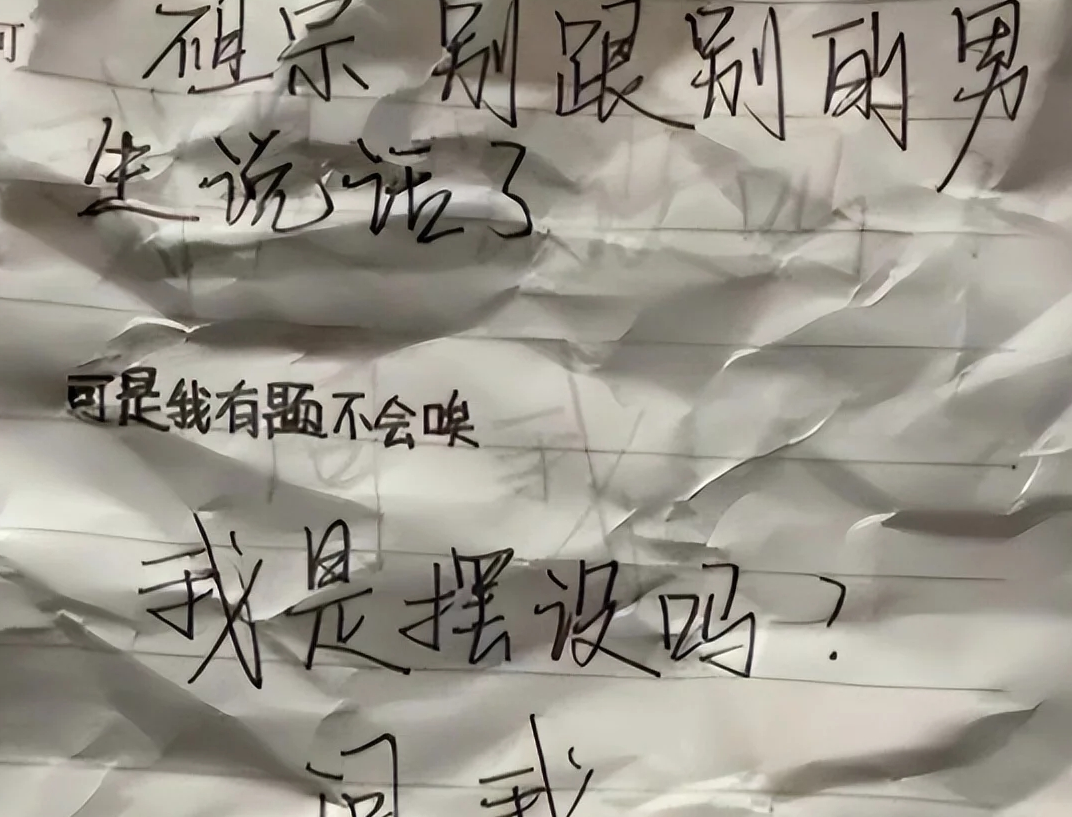 祖宗 别跟别的男
生说话了
可是我有题不会唉
我是摆设吗?
问我